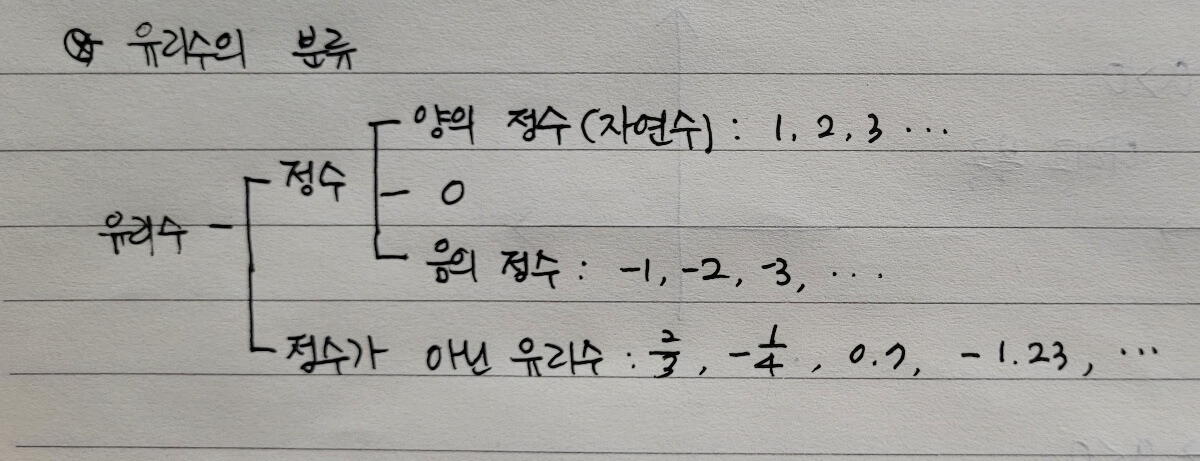 ☆ 유리수의 분류
양의 정수(자연수) : 1, 2, 3 ...
정수
0
유리수
음의 정수 : -1, -2, -3, ...
정수가 아닌 유리수 : 2/3, -1/4, 0.7, -1.23, ...